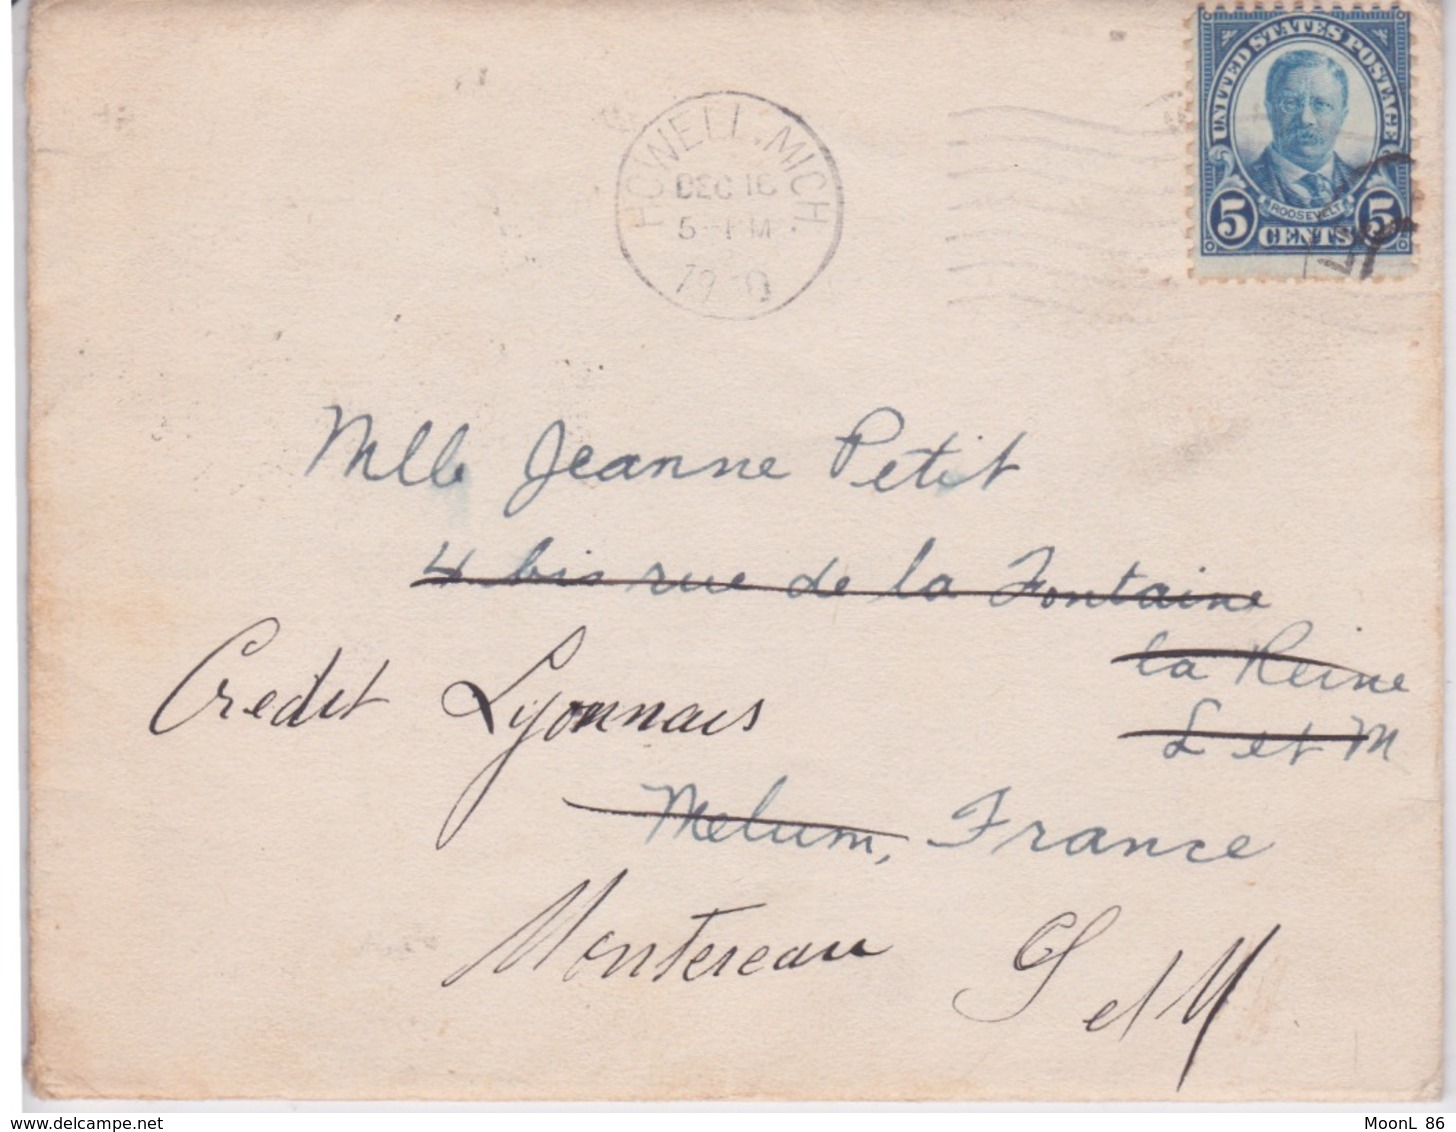 UNITED STATES POSTAGE
ROOSEVELT
5 CENTS 5
HOWELL, MICH.
DEC 16
5 - PM
Mlle Jeanne Petit
4 bis rue de la Fontaine
la Reine
Credit Lyonnais
S et M
Melum, France
Montereau S et M
www.delcampe.net
MoonL 86